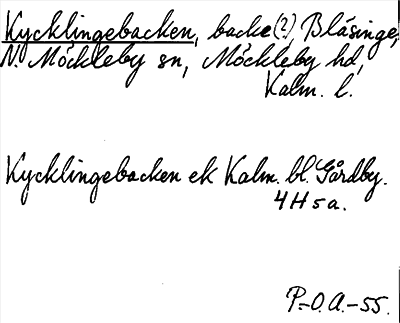 Kycklingebacken, backe (?), Bläsinge,
N. Möckleby sn, Möckleby hd,
Kalm. l.
Kycklingebacken ek Kalm. bl. Gårdby.
4H5a.
P-O.A.-55.